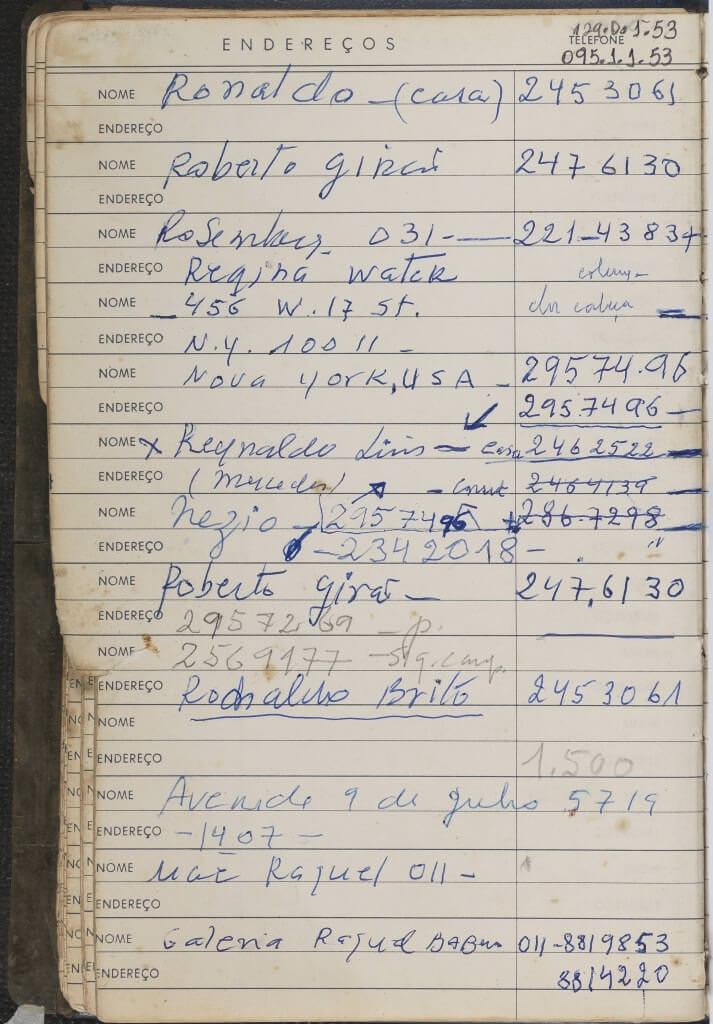 ENDEREÇOS
TELEFONE
095.1.1.53
NOME Ronaldo - (casa) 2453061
ENDEREÇO
NOME Roberto 2476130
ENDEREÇO
NOME 031 - 221-4383
ENDEREÇO Regina Water
NOME 456 W. 17 St.
ENDEREÇO N.Y. 10011 -
NOME Nova York, USA - 29574.96
ENDEREÇO 295.7496 -
NOME x Reynaldo - casa 2462522
ENDEREÇO 2464139
NOME 2957496 286.7298
ENDEREÇO - 2342018 - "
NOME Roberto 247.6130
ENDEREÇO 2957269 - p.
NOME 2569177
ENDEREÇO Ronaldo Brito 2453061
NOME
ENDEREÇO 1.500
NOME Avenida 9 de Julho 5719
ENDEREÇO - 1407 -
NOME Mãe Raquel 011 -
ENDEREÇO
NOME Galeria Raquel 011-8819853
ENDEREÇO 8814220